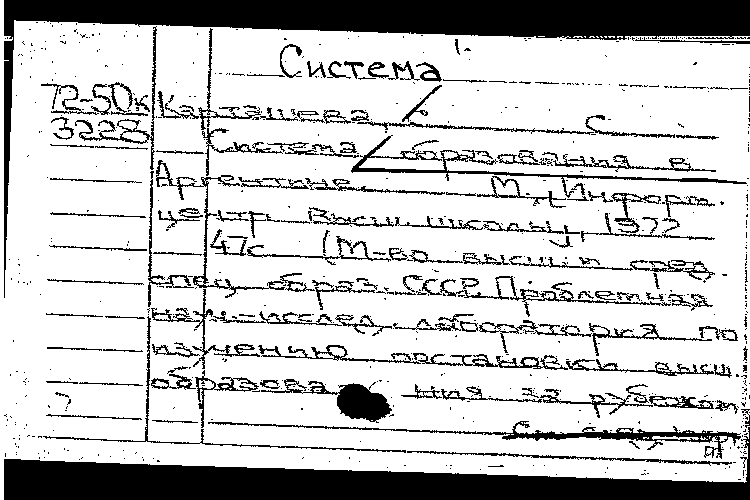 Система
72-50к Карташева, С. С
3228 Система образования в
Аргентине. М., Информ.
центр высш. школы, 1972
47с (М-во высш. и сред.
спец. образ. СССР. Проблемная
науч.-исслед. лаборатория по
изучению постановки высш.
образования за рубежом